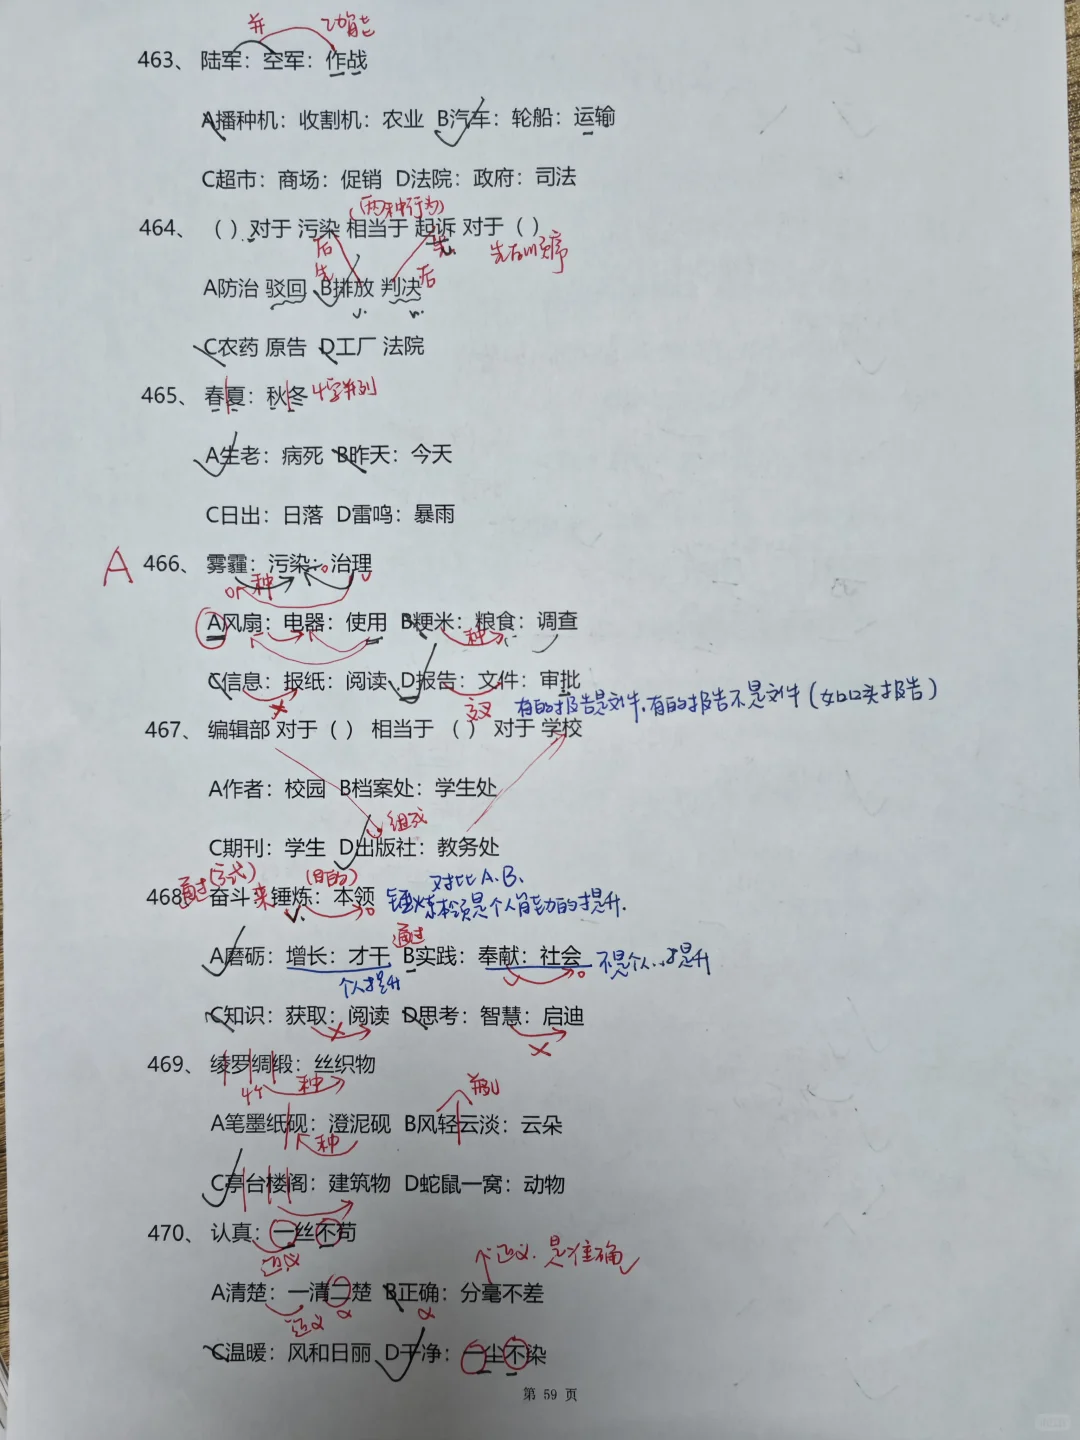 并 功能
463、 陆军：空军：作战
A播种机：收割机：农业 B汽车：轮船：运输
C超市：商场：促销 D法院：政府：司法
(两种行为)
464、 （ ）对于 污染 相当于 起诉 对于（ ）
后 先 先后顺序
先 后
A防治 驳回 B排放 判决
v. v.
C农药 原告 D工厂 法院
465、 春夏：秋冬 4字并列
A生老：病死 B昨天：今天
C日出：日落 D雷鸣：暴雨
A 466、 雾霾：污染：治理
种
A风扇：电器：使用 B粳米：粮食：调查
种
C信息：报纸：阅读 D报告：文件：审批
交叉 有的报告是文件，有的报告不是文件（如口头报告）
467、 编辑部 对于（ ） 相当于 （ ） 对于 学校
A作者：校园 B档案处：学生处
组成
C期刊：学生 D出版社：教务处
通过(方式) (目的) 对比A、B、
468、 奋斗来锤炼：本领 锤炼本领是个人能力的提升.
通过
A磨砺：增长：才干 B实践：奉献：社会 不是个人提升
个人提升
C知识：获取：阅读 D思考：智慧：启迪
469、 绫罗绸缎：丝织物
4个 种
并列
A笔墨纸砚：澄泥砚 B风轻云淡：云朵
种
C亭台楼阁：建筑物 D蛇鼠一窝：动物
470、 认真：一丝不苟
近义 近义. 是准确
A清楚：一清二楚 B正确：分毫不差
近义
C温暖：风和日丽 D干净：一尘不染
第 59 页